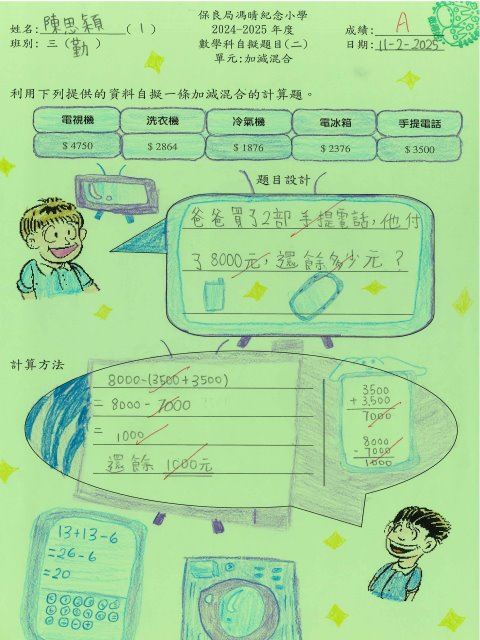 保良局馮晴紀念小學
姓名: 陳思穎 ( 1 )
2024-2025 年度
成績: A
班別: 三 (勤)
數學科自擬題目(二)
日期: 11-2-2025
單元:加減混合
利用下列提供的資料自擬一條加減混合的計算題。
電視機 洗衣機 冷氣機 電冰箱 手提電話
$ 4750 $ 2864 $ 1876 $ 2376 $ 3500
題目設計
爸爸買了2部手提電話,他付
了8000元,還餘多少元?
計算方法
8000-(3500+3500)
= 8000-7000
= 1000
還餘 1000元
3500
+ 3,500
7000
8000
- 7000
1000
13+13-6
=26-6
=20